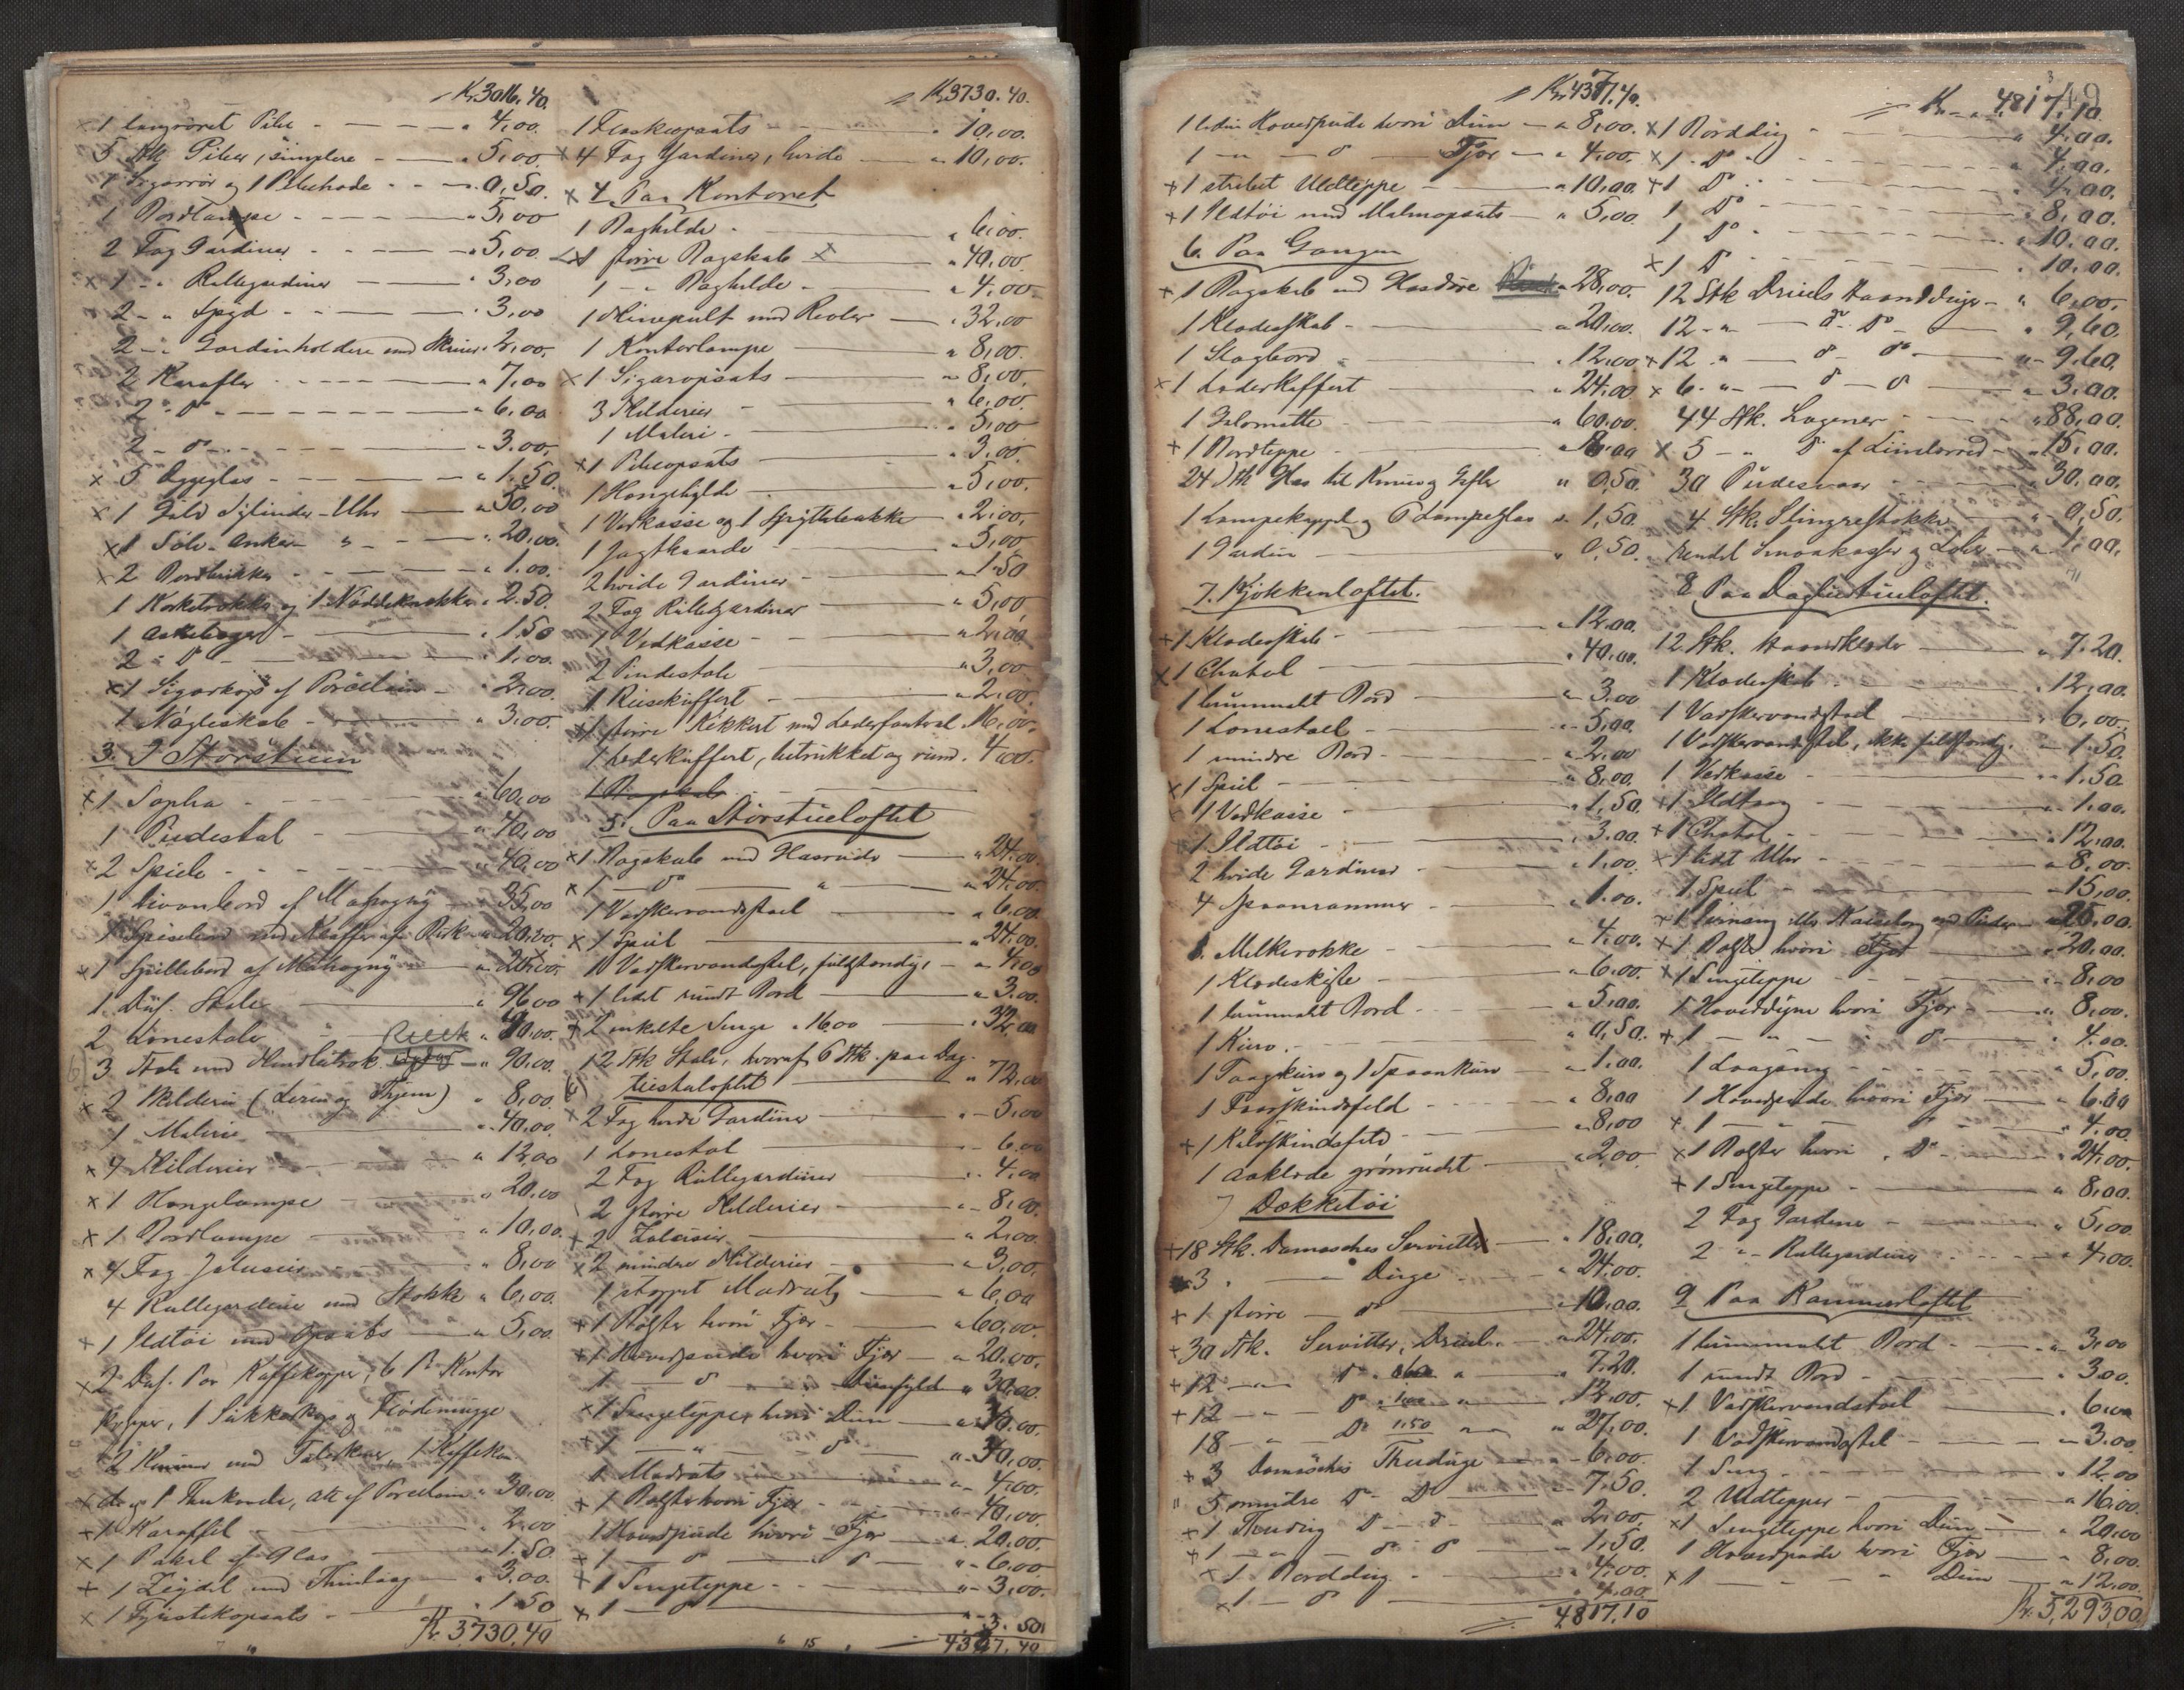 Kr. 3016.40.
× 1 langröret Pibe - 4,00.
5 Stk Piber, simplere - 5,00.
1 Sigarrör og 1 Pibehode - 0,50.
1 Bordlampe - 5,00
2 Fag Gardiner - 5,00.
× 1 - " Rullegardiner - 3,00
2 - " Spyd - 3,00
2 - " Gardinholdere med Skruer 2,00.
2 Karafler - 7,00
2 - Do - 6,00
2 - do - 3,00.
× 5 Æggeglas - 1.50.
× 1 Guld Sylinder-Uhr - 50,00
× 1 Sölv-Anker " - 20,00.
× 2 Bordbrikker - 1,00.
1 Korketrækker og 1 Nöddeknekker 2.50.
1 Askebæger - 1.50
2 - Do - 1,00.
× 1 Sigarkop af Porcelain - 2,00.
1 Nögleskab - 3,00.
3. I Storstuen
× 1 Sopha - 60,00
1 Pudestol - 40,00
× 2 Speile - 40,00
1 Divanbord af Mahogny - 35,00
1 Spisebord med Klaffer af Birk - 20,00.
× 1 Spillebord af Mahogny -
1 Dus. Stole - 96,00
2 Lönestole
3 Stole med Hindletræk - 90,00.
× 2 Skilderier ( - og Thjem) " 8,00.
1 Maleri - 40,00.
× 4 Skilderier - 12,00
× 1 Hængelampe - 20,00
× 1 Bordlampe - 10,00.
× 4 Fag Jalusier - 8,00
4 Rullegardiner med Stokke " 6,00.
+ 1 Ildtöi med Opsats - 5,00.
× 2 Dus. Par Kaffekopper, 6 Pr. Kontor
kopper, 1 Sukkerkop og Flödemugge
2 Kummer med Talerkener, 1 Kaffekan
× de og 1 Thekande, alt af Porcelain 30,00.
+ 1 Karaffel - 2,00
× 1 Pokal af Glas - 1.50
+ 1 Zeydel med Thinlaag - 3,00.
× 1 Fyrstikopsats - 1.50
Kr. 3730,40

Kr. 3730.40.
1 Flaskeopsats - 10,00.
× 4 Fag Gardiner, hvide - 10,00.
× 4 Paa Kontoret
1 Boghylde - 6,00.
× 1 större Bogskab × - 40,00.
1 - " Boghylde - 4,00.
1 Skrivepult med Reoler - 32,00
1 Kontorlampe - 8,00.
× 1 Sigaropsats - 8,00,
3 Skilderier - 6,00.
1 Maleri - 5,00
× 1 Pibeopsats - 3,00.
1 Hængehylde - 5,00.
1 Vedkasse og 1 Spyttebakke - 2,00,
1 Jagtkaarde - 5,00
2 hvide Gardiner - 1.50
2 Fag Rullegardiner - 5,00
1 Vedkasse - 2,00
2 Pindestole - 3,00
1 Reisekuffert - 2,00.
× 1 större Kikkert med Læderfouteral 16,00.
1 Læderkuffert, betrukket og rund. 4,00.
1 Bogskab
5. Paa Storstueloftet
× 1 Bogskab med Glasruder - 24,00.
× 1 - Do - " - 24,00.
1 Vadskervandsstoel - 6,00
× 1 Speil - 24,00.
1 Vadskervandsstel, fuldstændig, - 4,00
+ 1 lidet rundt Bord - 3,00.
× 2 enkelte Senge " 16,00 - 32,00
12 Stk Stole, hvoraf 6 Stk. paa Dag-
ligstueloftet - 72,00
× 2 Fag hvide Gardiner - 5,00
1 Lönestol - 6,00
2 Fag Rullegardiner - 4,00
2 större Skilderier - 8,00.
+ 2 Jalousier - 2,00
× 2 mindre Skilderier - 3,00.
1 stoppet Madrats - 6,00
+ 1 Bolster hvori Fjær - 60,00.
+ 1 Hovedpude hvori Fjær - 20,00.
1 - do - Dunfyld " 30,00.
× 1 Sengeteppe, hvori Dun
× 1 - " - do - 30,00.
1 Madrats - 4,00.
× 1 Bolster hvori Fjær - 40,00.
1 Hovedpude hvori Fjær - 20,00.
+ 1 - do - do " 6,00.
+ 1 Sengeteppe - 3,00.
× 1 - do - 3.50
4317.40

Kr. 4317.40.
1 liden Hovedpude hvori Dun - 8,00.
1 - " - do - Fjær - 4,00.
+ 1 stribet Uldteppe - 10,00.
+ 1 Ildtöi med Malmopsats - 5,00
6. Paa Gangen
+ 1 Bogskab med Glasdöre - 28,00.
1 Klædesskab - 20,00.
1 Slagbord - 12,00
× 1 Læderkoffert - 24,00
1 Gulvmatte - 60,00.
+ 1 Bordteppe -
24 Stk Glas til Knive og Gafler " 0,50.
1 Lampekuppel og 6 Lampeglas " 1,50.
1 Gardin - 0,50.
7. Kjökkenloftet.
+ 1 Klædesskab - 12,00.
× 1 Chatol - 40,00.
1 brunmalt Bord - 3,00
1 Lönestoel - 5,00.
1 mindre Bord - 2,00
× 1 Speil - 8,00.
1 Vedkasse - 1,50.
1 Ildtöi - 3,00
2 hvide Gardiner - 1,00.
4 Spaanrammer - 1,00.
8. Melkerokke - 4,00.
1 Klædeskiste - 6,00.
1 brunmalt Bord - 5,00.
1 Kurv - 0,50.
1 Taagkurv og 1 Spaankurv - 1,00.
1 Faarskindsfeld - 8,00
+ 1 Kalvskindsfeld - 8,00
1 Aaklæde grönrudet - 2,00
7 Dækketöi
+ 18 Stk. Damaskes Servietter - 18,00.
3 - " Duge - 24,00.
+ 1 större - do - 10,00.
+ 30 Stk. Servietter, Dreiels - 24,00.
+ 12 - " Do " 060 " - 7.20.
+ 12 - " Do " 100 " - 12,00.
18 - " Do 1.50 - 27,00.
+ 3 Damaskes Theduge - 6,00.
" 5 mindre Do - Do - 7.50.
+ 1 Thedug Do - do - 2,00.
+ 1 - " - do do - 1,50.
× 1 Borddug - 4,00.
× 1 - do - 4,00.
4817.10

Kr. 4817,10
49
× 1 Borddug - 4,00.
× 1 - Do - 4,00.
+ 1 Do - 4,00,
1 Do - 8,00.
1 Do - 10,00
× 1 Do - 10,00.
12 Stk Dreiels Haandduge - 6,00.
12 - " - do - Do - 9,60.
+ 12 " - do - do - 9.60
× 6 - " - do - do - 3,00.
44 Stk. Lagener - 88,00.
× 5 - " Do af Linlerred - 15,00.
30 Pudevaar - 30,00.
4 Stk. Slingrestokke - 0,50.
Endel Smaakasser og - 1,00.
8 Paa Dagligstueloftet.
12 Stk. Haandklæder - 7.20.
1 Klædesskab - 12,00.
1 Vadskervandsstoel - 6,00.
1 Vadskervandsstel, ikke fuldstændig. - 1.50.
1 Vedkasse - 1.50
× 1 Ildtang - 1,00.
+ 1 Chatol - 12,00.
× 1 lidet Uhr - 8,00.
1 Speil - 15,00.
+ 1 Jernseng
× 1 Bolster hvori Fjær - 20,00.
× 1 Sengeteppe - 8,00
1 Hoveddyne hvori Fjær - 8,00.
+ 1 - " - " do - 4.00.
1 Langseng - 5,00.
1 Hovedpude hvori Fjær - 6.00
+ 1 - " - 4,00.
× 1 Bolster hvori " Do - 24,00.
+ 1 Sengeteppe - 8,00.
2 Fag Gardiner - 5,00
2 " - Rullegardiner - 4,00.
9 Paa Kammerloftet
1 brunmalt Bord - 3,00
1 rundt Bord - 3,00.
× 1 Vadskervandsstoel - 6,00
1 Vadskervandsstel - 3,00.
1 Seng - 12,00
2 Uldtepper - 16,00.
× 1 Sengeteppe hvori Dun - 20,00
1 Hovedpude hvori Fjær - 8,00.
× 1 - " - " Dun - 12,00.
Kr. 5,293,00